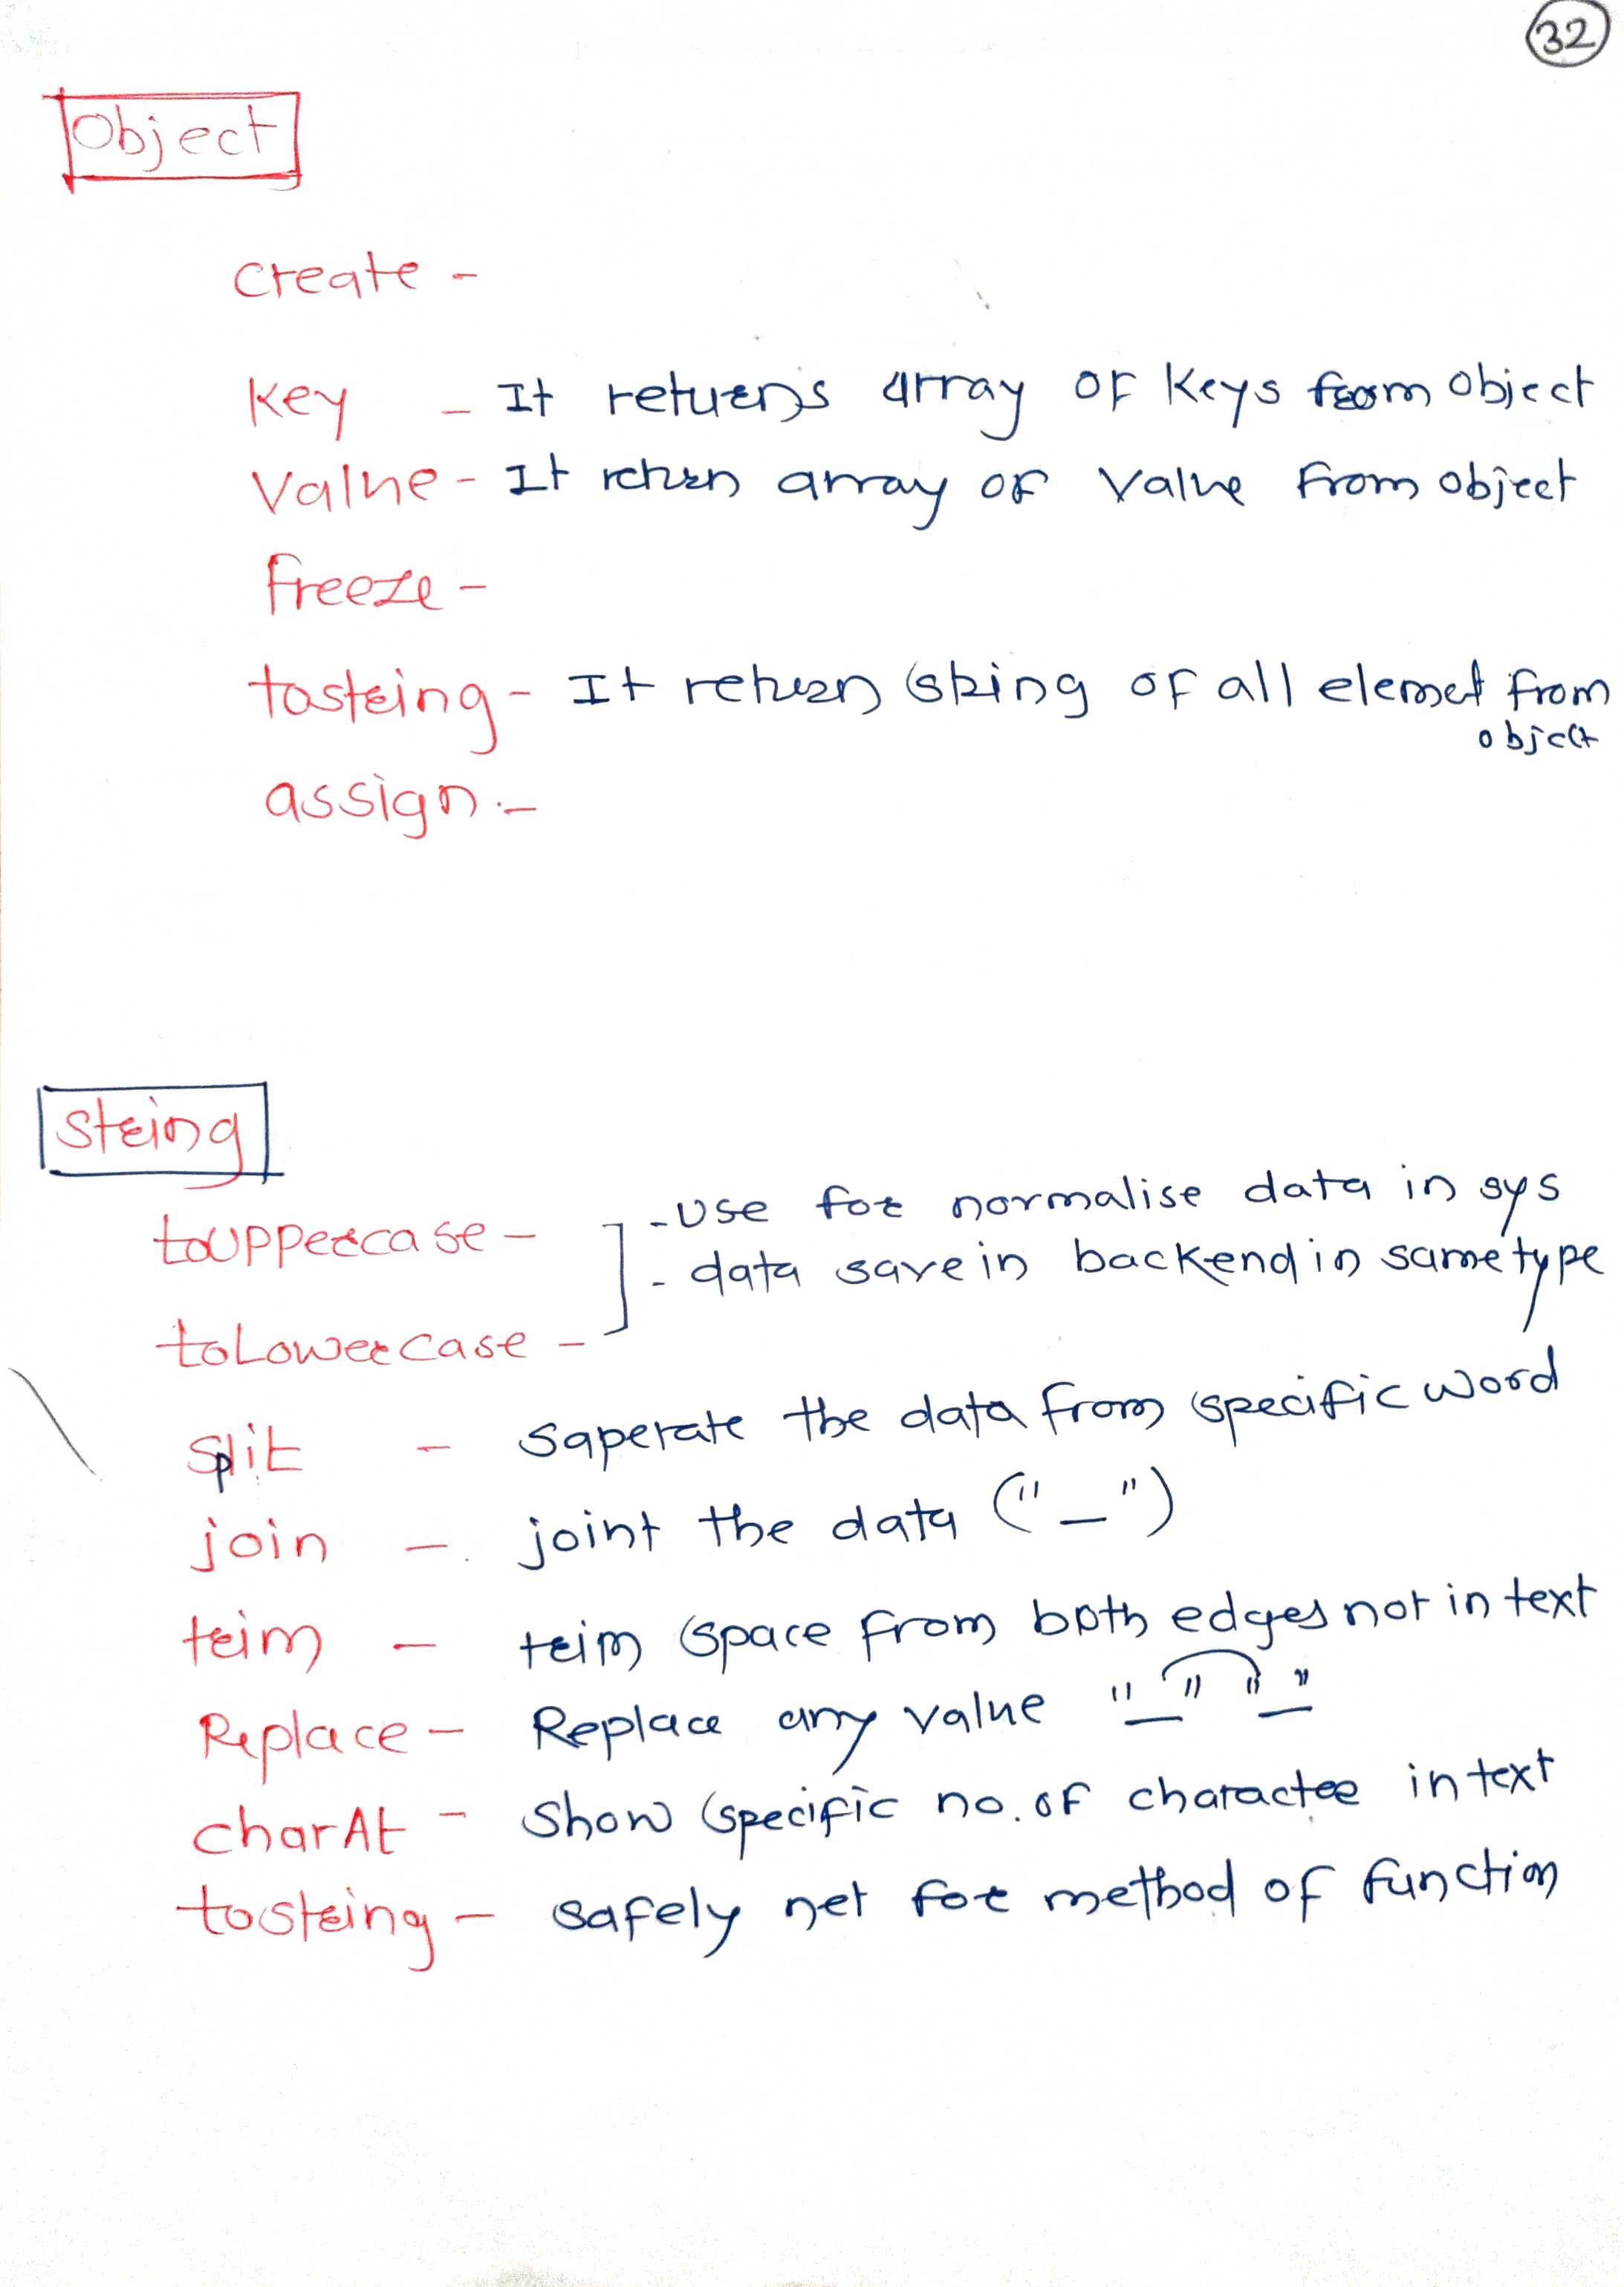 32
Object
create -
key - It returns array of keys from object
value - It return array of value from object
freeze -
tostring - It return string of all elemet from
object
assign -
string
touppercase -
- use for normalise data in sys
- data save in backend in same type
toLowercase -
split - saperate the data from specific word
join - joint the data ("_")
trim - trim space from both edges not in text
Replace - Replace any value "_" "_"
charAt - show specific no. of character in text
tostring - safely net for method of function